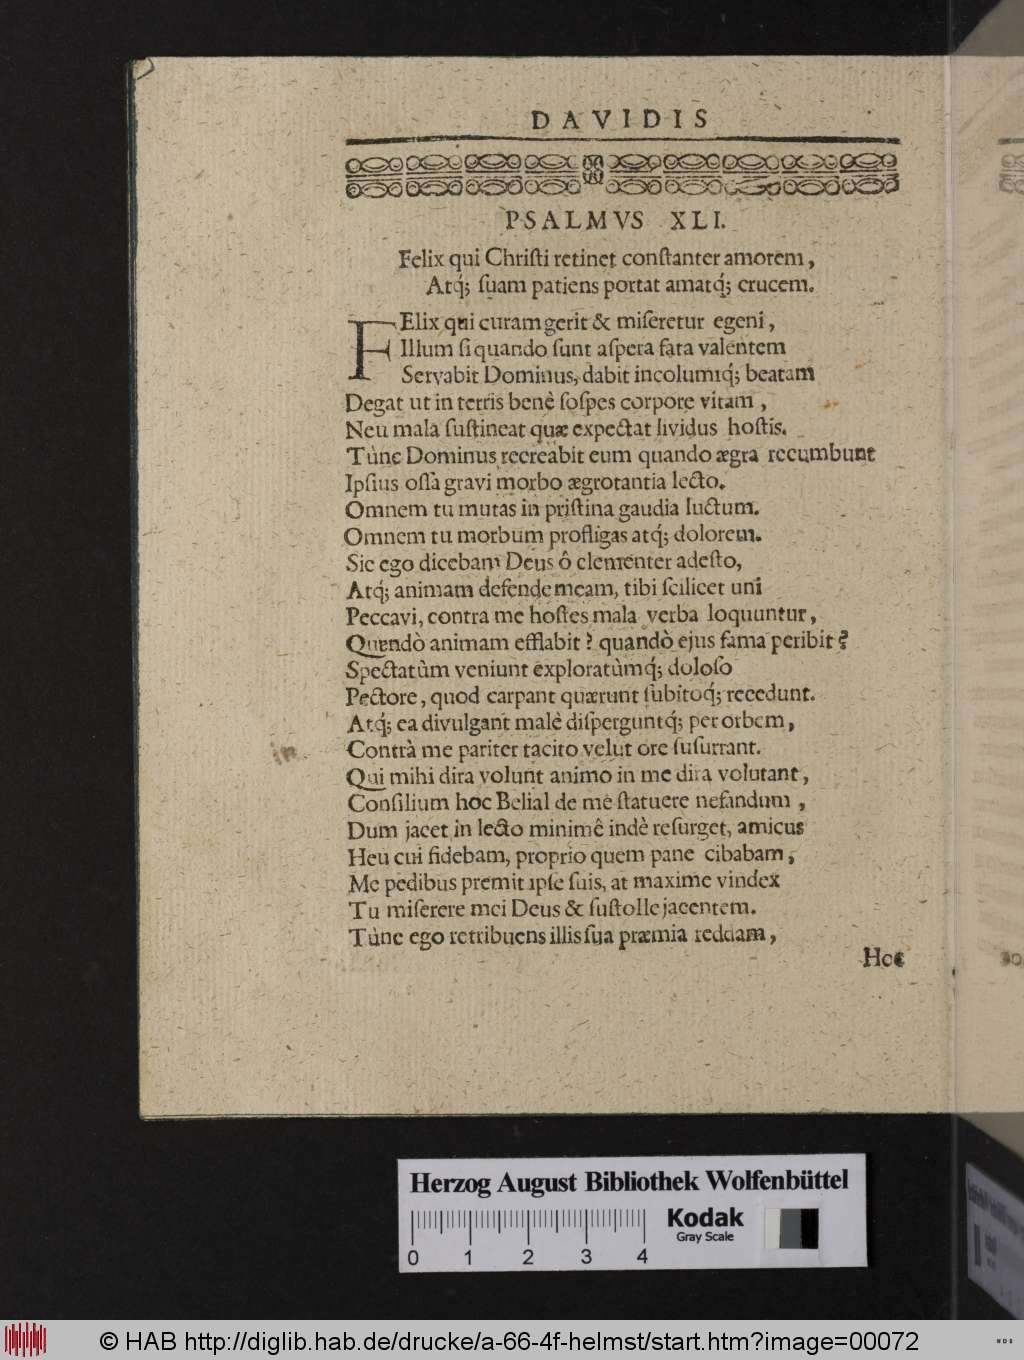 DAVIDIS
PSALMVS XLI.
Felix qui Chriſti retinet conſtanter amorem,
Atq́; ſuam patiens portat amatq́; crucem.
FElix qui curam gerit & miſeretur egeni,
Illum ſi quando ſunt aſpera fata valentem
Servabit Dominus, dabit incolumiq́; beatam
Degat ut in terris benè ſoſpes corpore vitam,
Neu mala ſuſtineat quæ expectat lividus hoſtis.
Tùnc Dominus recreabit eum quando ægra recumbunt
Ipſius oſſa gravi morbo ægrotantia lecto.
Omnem tu mutas in priſtina gaudia luctum.
Omnem tu morbum profligas atq́; dolorem.
Sic ego dicebam Deus ô clementer adeſto,
Atq́; animam defende meam, tibi ſcilicet uni
Peccavi, contra me hoſtes mala verba loquuntur,
Quandò animam efflabit? quandò ejus fama peribit?
Spectatùm veniunt exploratùmq́; doloſo
Pectore, quod carpant quærunt ſubitoq́; recedunt.
Atq́; ea divulgant malè diſperguntq́; per orbem,
Contrà me pariter tacito velut ore ſuſurrant.
Qui mihi dira volunt animo in me dira volutant,
Conſilium hoc Belial de me ſtatuere nefandum,
Dum jacet in lecto minimê indè reſurget, amicus
Heu cui fidebam, proprio quem pane cibabam,
Me pedibus premit ipſe ſuis, at maxime vindex
Tu miſerere mei Deus & ſuſtolle jacentem.
Tùnc ego retribuens illis ſua præmia reddam,
Hoc
Herzog August Bibliothek Wolfenbüttel
Kodak
Gray Scale
0 1 2 3 4
© HAB http://diglib.hab.de/drucke/a-66-4f-helmst/start.htm?image=00072